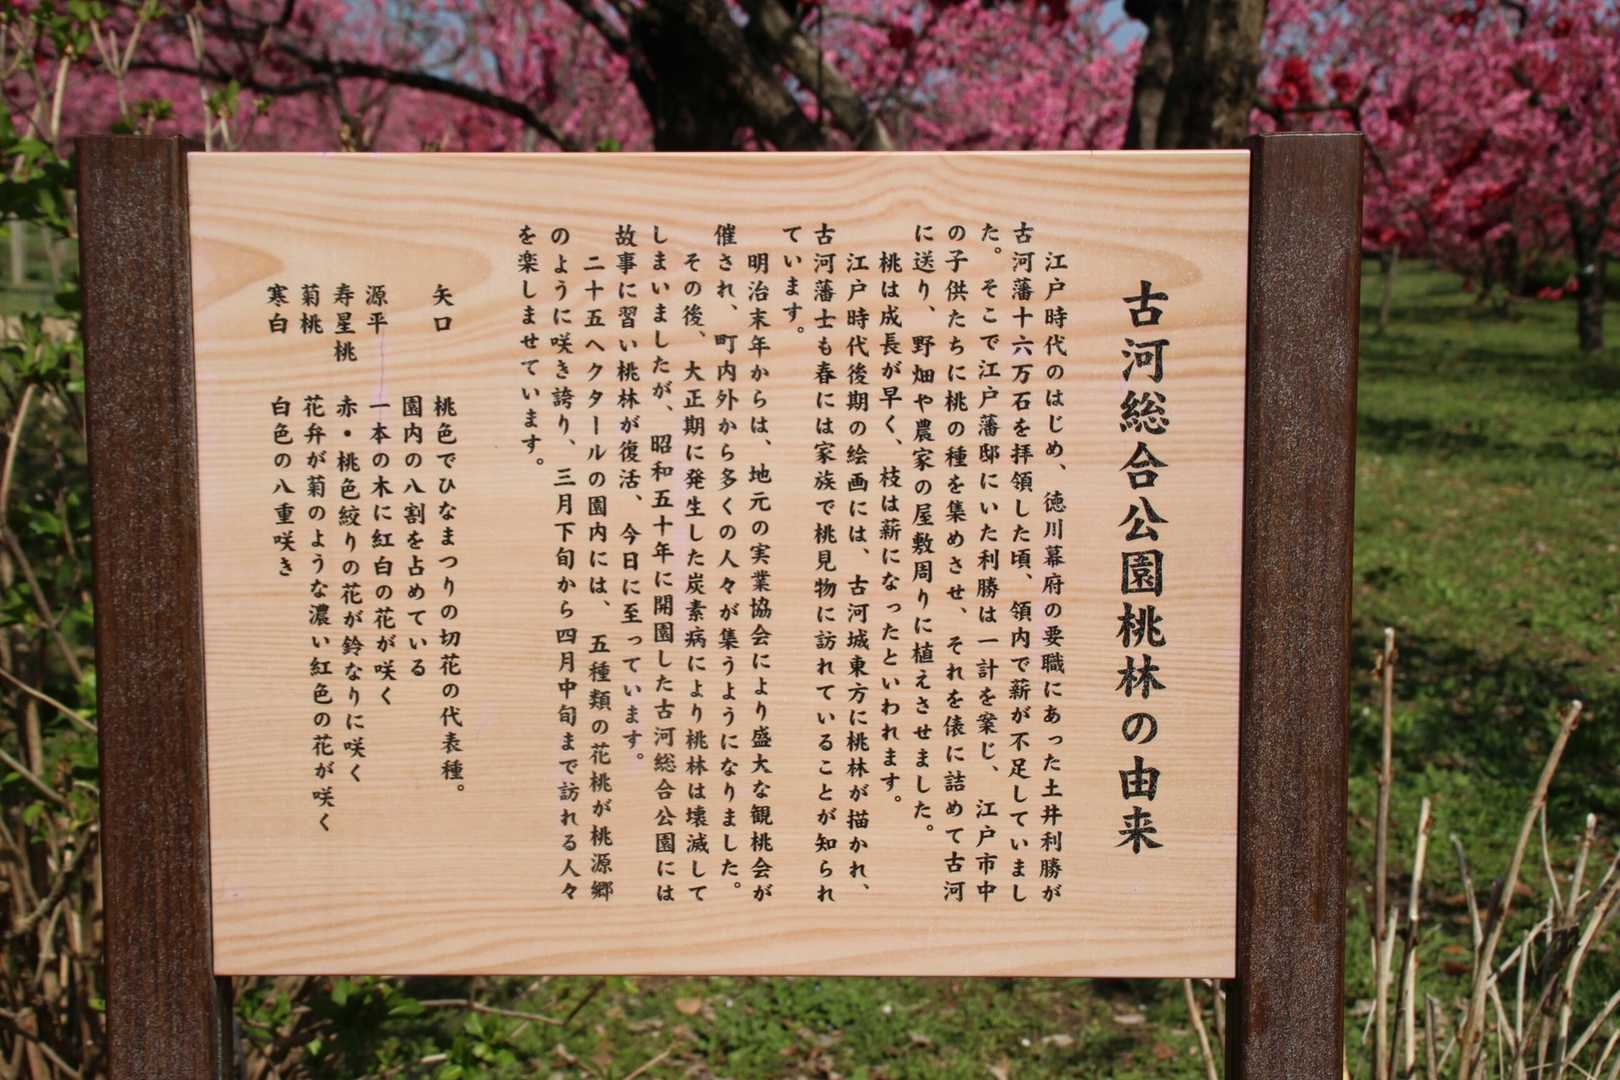 古河総合公園桃林の由来
江戸時代のはじめ、徳川幕府の要職にあった土井利勝が
古河藩十六万石を拝領した頃、領内で薪が不足していまし
た。そこで江戸藩邸にいた利勝は一計を案じ、江戸市中
の子供たちに桃の種を集めさせ、それを俵に詰めて古河
に送り、野畑や農家の屋敷周りに植えさせました。
桃は成長が早く、枝は薪になったといわれます。
江戸時代後期の絵画には、古河城東方に桃林が描かれ、
古河藩士も春には家族で桃見物に訪れていることが知られ
ています。
明治末年からは、地元の実業協会により盛大な観桃会が
催され、町内外から多くの人々が集うようになりました。
その後、大正期に発生した炭素病により桃林は壊滅して
しまいましたが、昭和五十年に開園した古河総合公園には
故事に習い桃林が復活、今日に至っています。
二十五ヘクタールの園内には、五種類の花桃が桃源郷
のように咲き誇り、三月下旬から四月中旬まで訪れる人々
を楽しませています。
矢口 桃色でひなまつりの切花の代表種。
園内の八割を占めている
源平 一本の木に紅白の花が咲く
寿星桃 赤・桃色絞りの花が鈴なりに咲く
菊桃 花弁が菊のような濃い紅色の花が咲く
寒白 白色の八重咲き